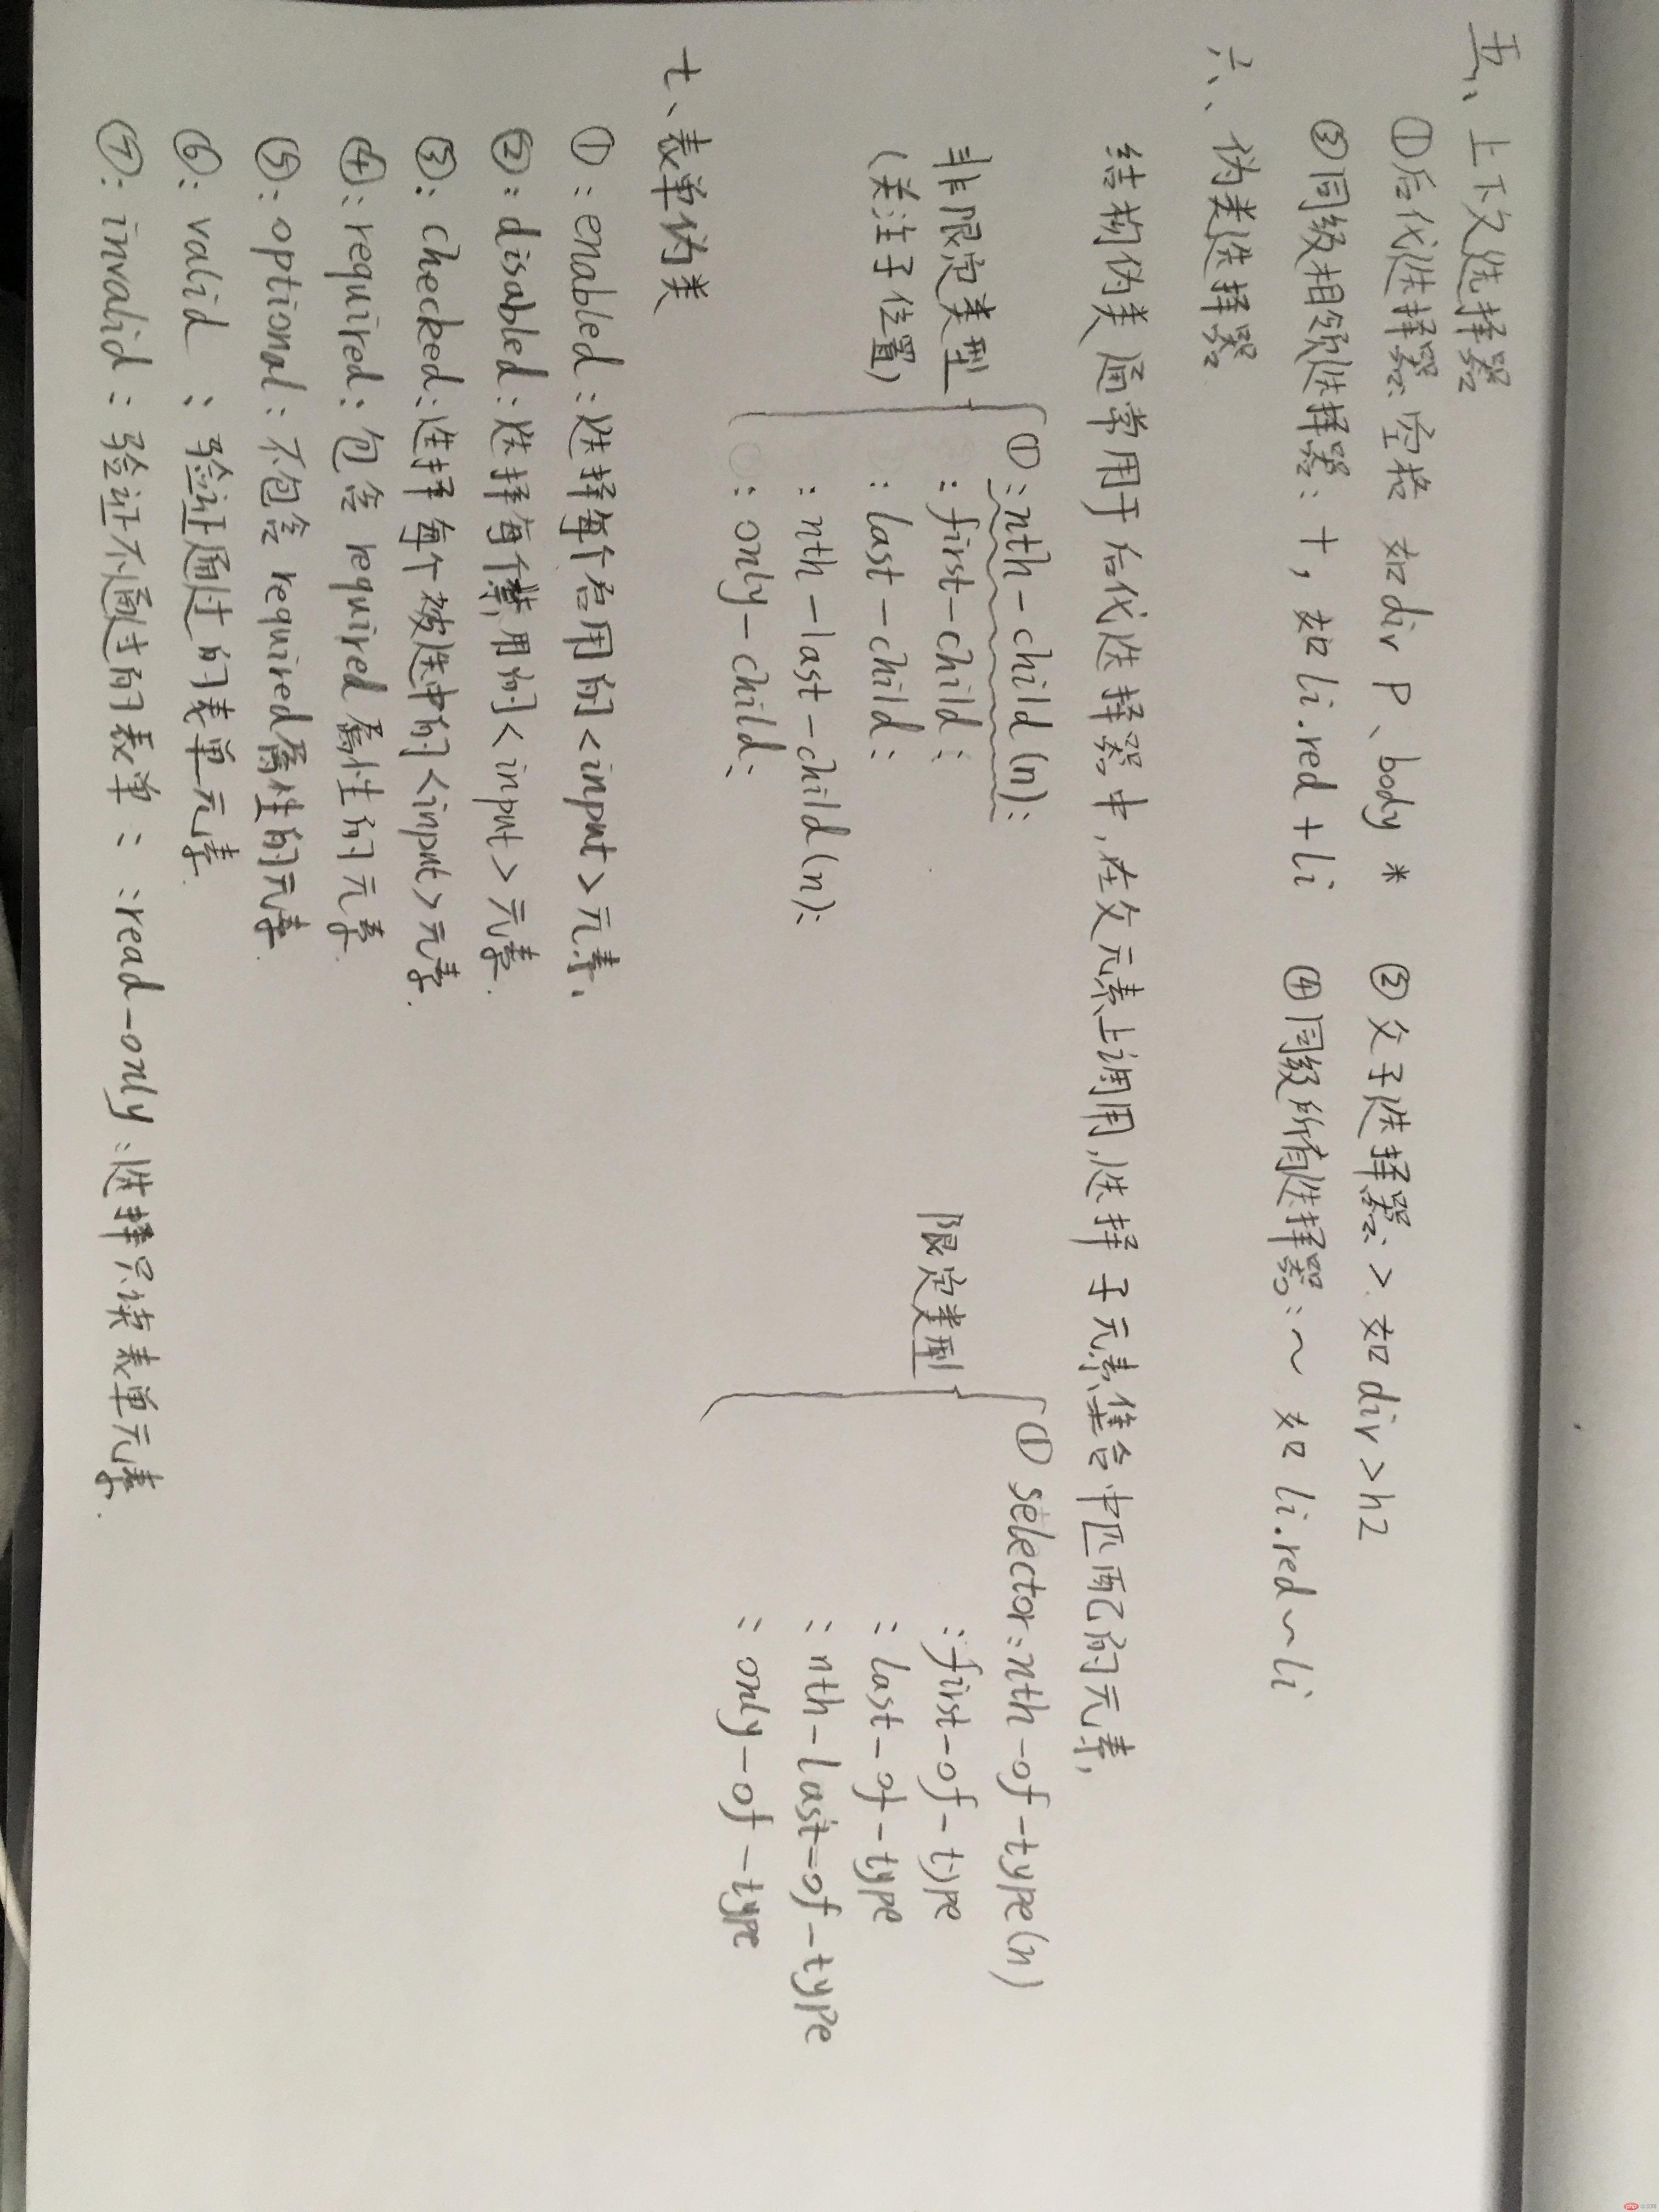 五、上下文选择器
①后代选择器: 空格 如div P、body * ②父子选择器: > 如div>h2
③同级相邻选择器: +, 如li.red+li ④同级所有选择器: ~ 如li.red~li
六、伪类选择器.
结构伪类通常用于后代选择器中,在父元素上调用,选择子元素集合中匹配的元素,
①:nth-child(n): ① selector:nth-of-type(n)
非限定类型 :first-child: 限定类型 :first-of-type
(关注于位置) :last-child: :last-of-type
:nth-last-child(n): :nth-last-of-type
:only-child: :only-of-type
七、表单伪类
① :enabled:选择每个启用的<input>元素,
② :disabled:选择每个禁用的<input>元素.
③ :checked:选择每个被选中的<input>元素.
④ :required:包含required属性的元素.
⑤ :optional:不包含required属性的元素.
⑥ :valid :验证通过的表单元素.
⑦ :invalid :验证不通过的表单: :read-only:选择只读表单元素.
php 中文网